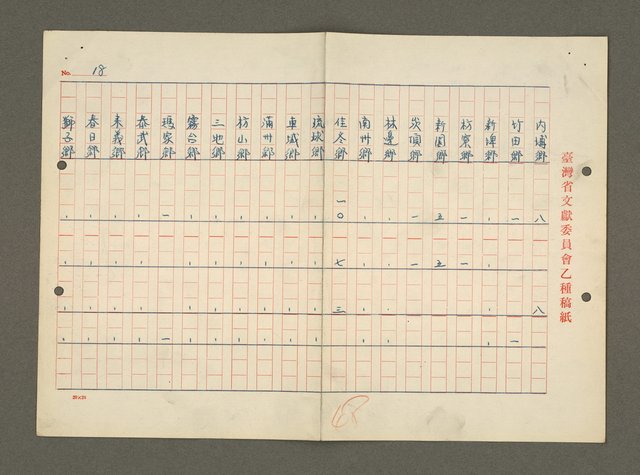 臺灣省文獻委員會乙種稿紙
內埔鄉 八 八
竹田鄉 一 一
新埤鄉
枋寮鄉 一 一
新園鄉 五 五
崁頂鄉 一 一
林邊鄉
南州鄉
佳冬鄉 一〇 七 三
琉球鄉
車城鄉
滿州鄉
枋山鄉
三地鄉
霧台鄉
瑪家鄉 一 一
泰武鄉
來義鄉
春日鄉
獅子鄉
No. 18